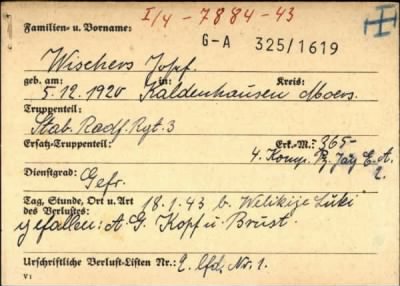 I/4 - 7884-43
Familien- u. Vorname:
G-A 325/1619
Wischers Josef
geb. am: in: Kreis:
5.12.1920 Kaldenhausen Moers.
Truppenteil:
Stab. Radf. Rgt. 3
Ersatz-Truppenteil: Erk.-M.: 365-
4. Komp. Pz. Jäg. E. A. 2.
Dienstgrad:
Gefr.
Tag, Stunde, Ort u. Art
des Verlustes:
18.1.43 b. Welikije Luki
gefallen: A. G. Kopf u. Brust.
Urschriftliche Verlust-Listen Nr.: 2. lfd. Nr. 1.
V: